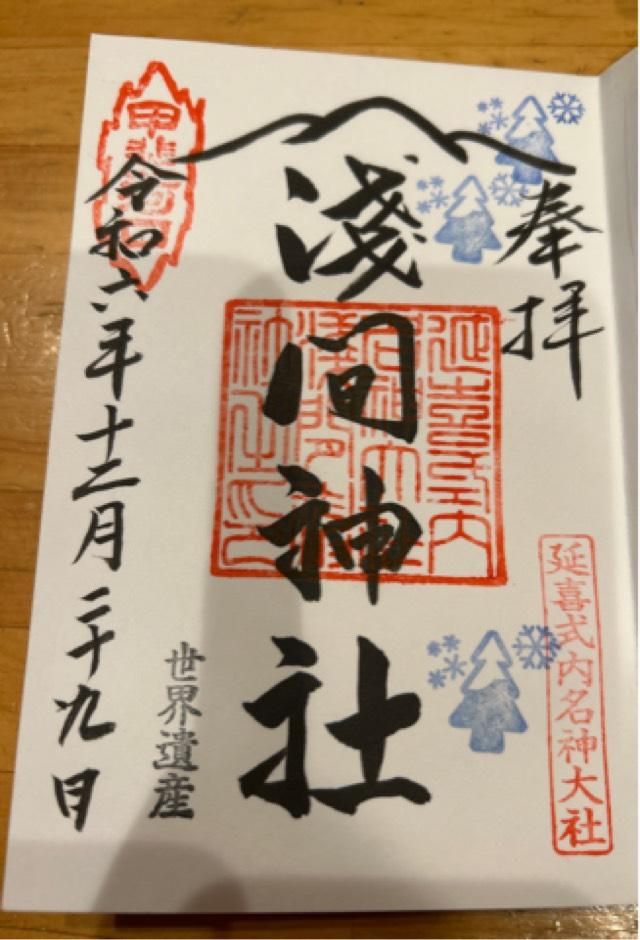 奉拝
延喜式内名神大社
延喜式内
名神大社
淺間神社
世界遺産
令和六年十二月二十九日
甲斐